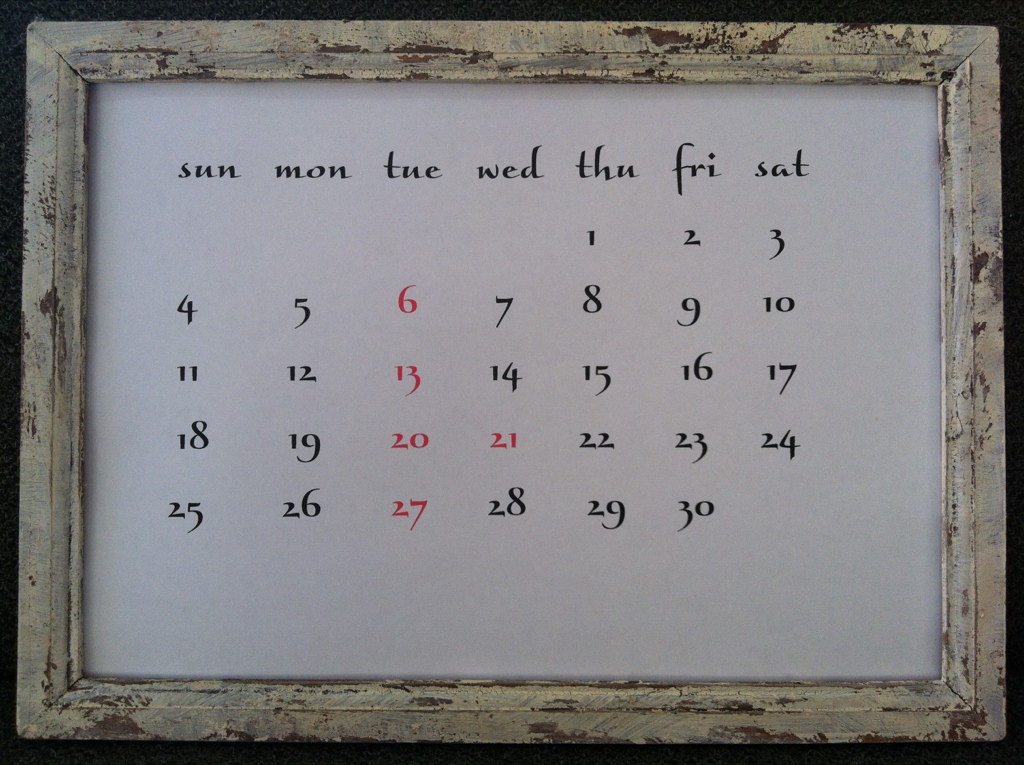 sun mon tue wed thu fri sat
1 2 3
4 5 6 7 8 9 10
11 12 13 14 15 16 17
18 19 20 21 22 23 24
25 26 27 28 29 30